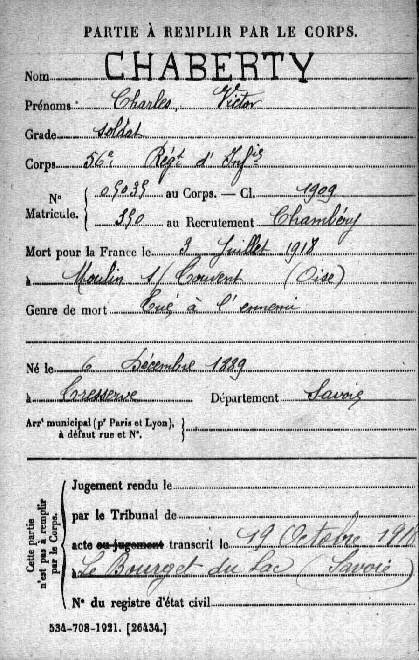 PARTIE À REMPLIR PAR LE CORPS.
Nom CHABERTY
Prénoms Charles, Victor
Grade soldat
Corps 56e Régt d'Infie
Nº Matricule. { 05035 au Corps. — Cl. 1909
390 au Recrutement Chambéry
Mort pour la France le 3 Juillet 1918
à Moulin s/ Touvent (Oise)
Genre de mort Tué à l'ennemi
Né le 6 Décembre 1889
à Tresserve Département Savoie
Arrt municipal (pr Paris et Lyon), à défaut rue et Nº. }
Cette partie n'est pas à remplir par le Corps.
Jugement rendu le
par le Tribunal de
acte ou jugement transcrit le 19 Octobre 191
à Le Bourget du Lac (Savoie)
Nº du registre d'état civil
534-708-1921. [26434.]